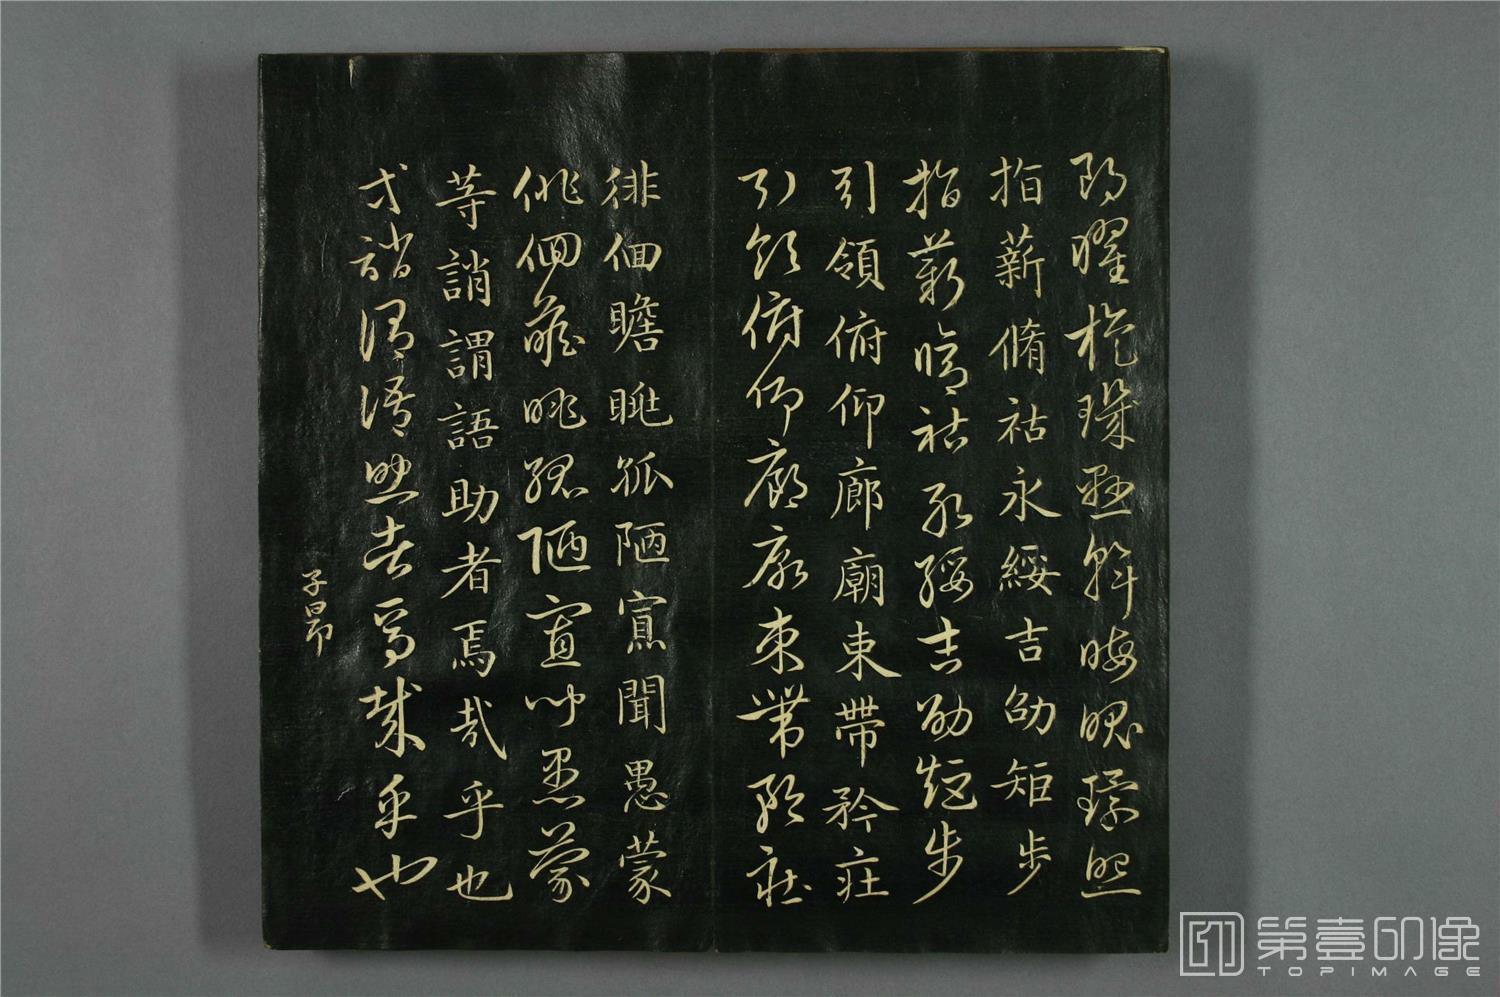 朗曜旋璣懸斡晦魄環照
指薪脩祜永綏吉劭矩步
指薪脩祜永綏吉劭矩步
引領俯仰廊廟束帶矜莊
引領俯仰廊廟束帶矜莊
徘徊瞻眺孤陋寡聞愚蒙
徘徊瞻眺孤陋寡聞愚蒙
等誚謂語助者焉哉乎也
等誚謂語助者焉哉乎也
子昂
第壹印像
TOPIMAGE